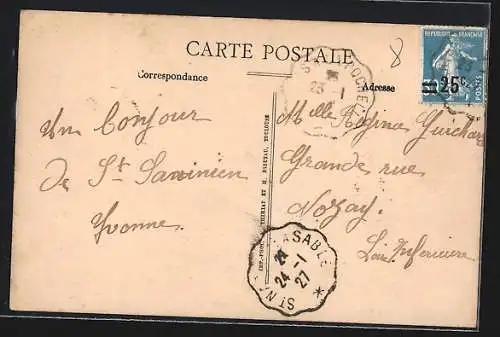 CARTE POSTALE
8
Correspondance
Adresse
REPUBLIQUE FRANÇAISE
25c
23 -1
Un Bonjour
de St Savinien
Yvonne
Melle Régina Guichard
Grande rue
Nozay
Loire Inférieure
21
24 -1
27
ST N